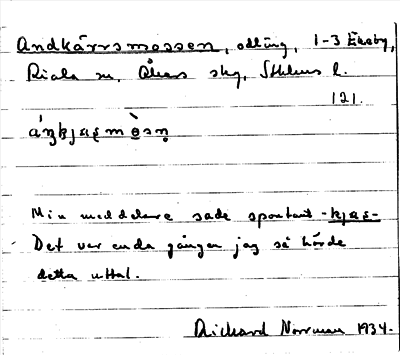 Andkärrsmossen, odling, 1-3 Ekeby,
Riala sn, Åkers skg, Sthlms l.
121.
áŋkjæʂmòsn̥
Min meddelare sade spontant -kjæʂ-
Det var enda gången jag så hörde
detta uttal.
Rickard Norrman 1934.